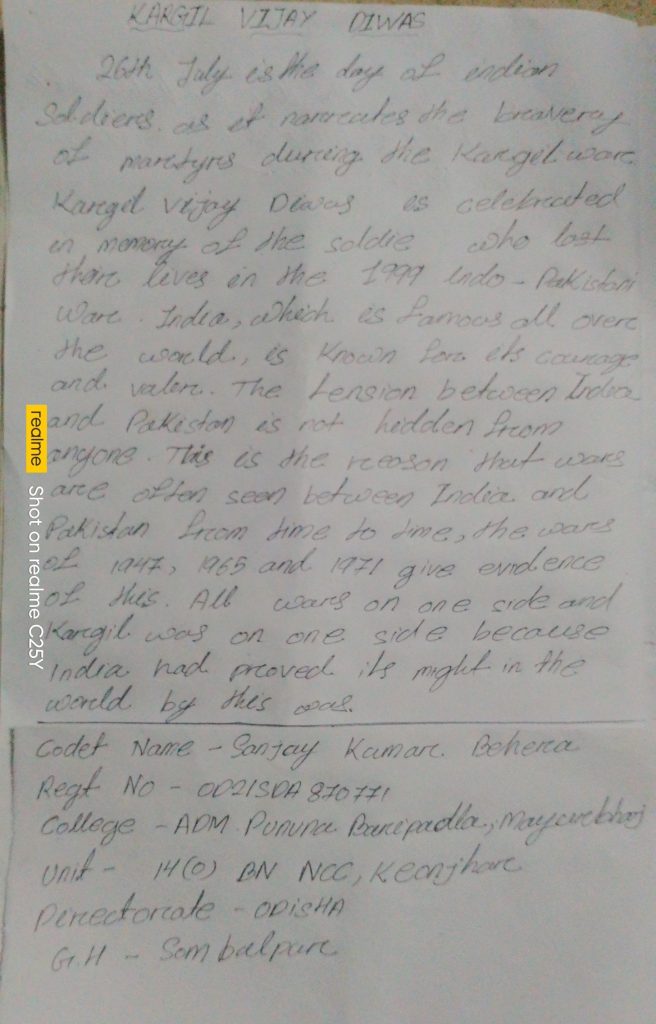 KARGIL VIJAY DIWAS
26th July is the day of indian
Soldiers. as it narrates the bravery
of martyrs during the Kargil war.
Kargil Vijay Diwas is celebrated
in memory of the soldie who lost
their lives in the 1999 Indo-Pakistan
War. India, which is famous all over
the world, is known for its courage
and valor. The tension between India
and Pakistan is not hidden from
anyone. This is the reason that wars
are often seen between India and
Pakistan from time to time, the wars
of 1947, 1965 and 1971 give evidence
of this. All wars on one side and
Kargil was on one side because
India had proved its might in the
world by this was.
Codet Name - Sanjay Kumar Behera
Regt No - OD21SDA870771
College - ADM Baripadla, Mayurbhanj
Unit - 14(O) BN NCC, Keonjhar
Directorate - ODISHA
G.H - Sombalpur
realme Shot on realme C25Y